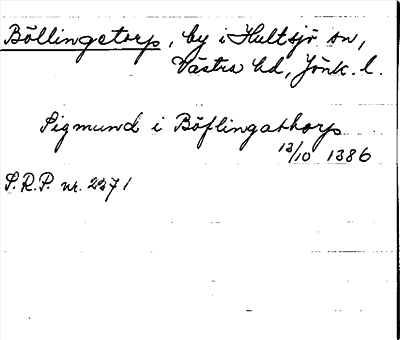 Böllingetorp, by i Hultsjö sn,
Västra hd, Jönk. l.
Sigmund i Böflingathorp
12/10 1386
S.R.P. nr. 2271